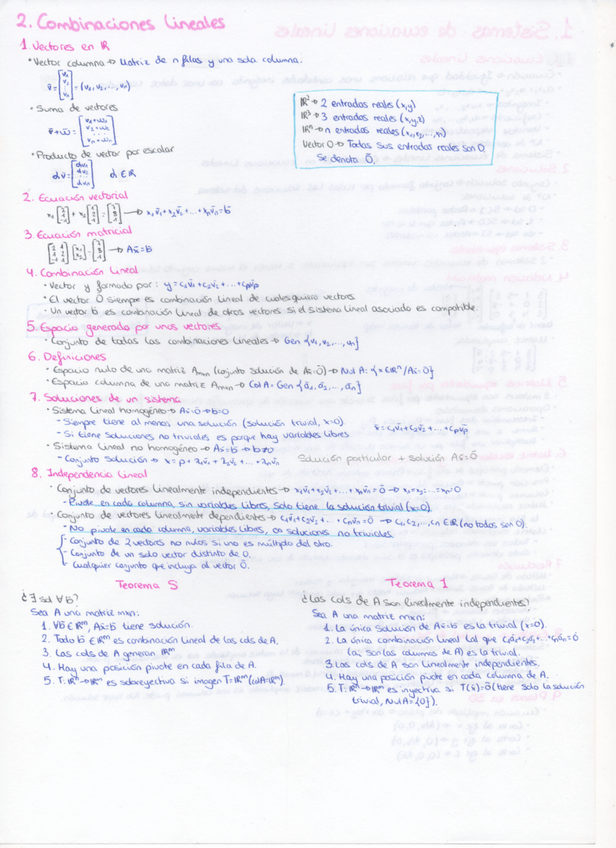 2. Combinaciones Lineales
1. Vectores en ℝ
• Vector columna → Matriz de n filas y una sola columna.
v̄ = [v₁ v₂ : vₙ] = (v₁, v₂, ..., vₙ)
• Suma de vectores
v̄ + w̄ = [v₁+w₁ v₂+w₂ : vₙ+wₙ]
• Producto de vector por escalar
αv̄ = [αv₁ αv₂ : αvₙ] α ∈ ℝ
ℝ² → 2 entradas reales (x,y)
ℝ³ → 3 entradas reales (x,y,z)
ℝⁿ → n entradas reales (x₁, x₂, ..., xₙ)
Vector 0 → Todas sus entradas reales son 0
Se denota 0̄.
2. Ecuación vectorial
→ x₁v̄₁ + x₂v̄₂ + ... + xₙv̄ₙ = b̄
3. Ecuación matricial
→ Ax̄ = B
4. Combinación lineal
• Vector y formado por: y = c₁v̄₁ + c₂v̄₂ + ... + cₚv̄ₚ
• El vector 0̄ siempre es combinación lineal de cualesquiera vectores
• Un vector b̄ es combinación lineal de otros vectores si el sistema lineal asociado es compatible.
5. Espacio generado por unos vectores
• Conjunto de todas las combinaciones lineales → Gen {v₁, v₂, ..., vₙ}
6. Definiciones
• Espacio nulo de una matriz Aₘₓₙ (cojunto solución de Ax̄=0̄) → Nul A: {x ∈ ℝⁿ / Ax̄=0̄}
• Espacio columna de una matriz Aₘₓₙ → Col A: Gen {ā₁, ā₂, ..., āₙ}
7. Soluciones de un sistema
• Sistema lineal homogéneo → Ax̄=0̄ → b=0
- Siempre tiene al menos una solución (solución trivial, x=0)
- Si tiene soluciones no triviales es porque hay variables libres
x̄ = c₁v̄₁ + c₂v̄₂ + ... + cₚv̄ₚ
• Sistema lineal no homogéneo → Ax̄=b → b≠0
- Conjunto solución → x = p + λ₁v̄₁ + λ₂v̄₂ + ... + λₙv̄ₙ Solución particular + solución Ax̄=0̄
8. Independencia lineal
• Conjunto de vectores linealmente independientes → x₁v̄₁ + x₂v̄₂ + ... + xₙv̄ₙ = 0̄ → x₁=x₂...=xₙ=0
- Pivote en cada columna, sin variables libres, solo tiene la solución trivial (x=0).
• Conjunto de vectores linealmente dependientes → c₁v̄₁ + c₂v̄₂ + ... cₙv̄ₙ = 0̄ → c₁, c₂, ..., cₙ ∈ ℝ (no todos son 0)
- No pivote en cada columna, variables libres, ∞ soluciones no triviales.
- Conjunto de 2 vectores no nulos si uno es múltiplo del otro.
- Conjunto de un solo vector distinto de 0.
- Cualquier conjunto que incluya al vector 0̄.
Teorema S
¿∃ sol ∀b̄?
Sea A una matriz mxn:
1. ∀b̄ ∈ ℝᵐ, Ax̄=b̄ tiene solución.
2. Todo b̄ ∈ ℝᵐ es combinación lineal de las cols de A.
3. Las cols de A generan ℝᵐ
4. Hay una posición pivote en cada fila de A.
5. T: ℝⁿ→ℝᵐ es sobreyectiva si imagen T=ℝᵐ (colA=ℝᵐ)
Teorema 1
¿Las cols de A son linealmente independientes?
Sea A una matriz mxn:
1. La única solución de Ax̄=b es la trivial (x=0)
2. La única combinación lineal tal que c₁ā₁+c₂ā₂+...+cₙāₙ=0̄
(aᵢ son las columnas de A) es la trivial.
3 Las cols de A son linealmente independientes.
4. Hay una posición pivote en cada columna de A.
5. T: ℝⁿ→ℝᵐ es inyectiva si T(x̄)=0̄ (tiene solo la solución
trivial, Nul A={0}).